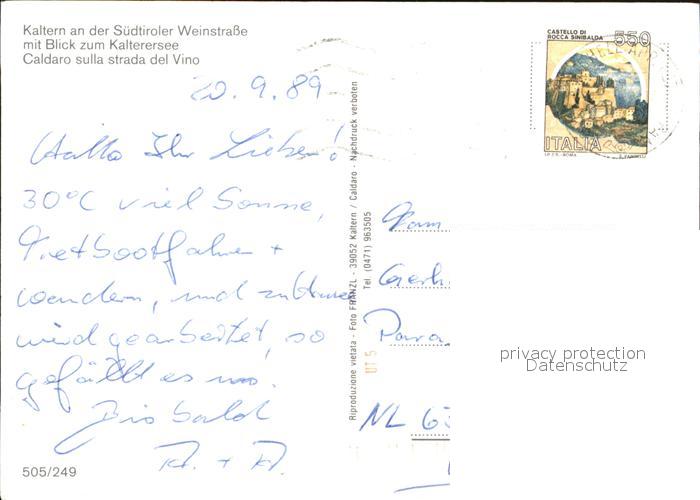 Kaltern an der Südtiroler Weinstraße
mit Blick zum Kalterersee
Caldaro sulla strada del Vino
20.9.89
Hallo Ihr Lieben!
30°C viel Sonne,
Mietbootfahren +
wandern, und zu Hause
wird gearbeitet, so
gefällt es uns.
Bis bald
505/249
Riproduzione vietata - Foto FRANZL - 39052 Kaltern / Caldaro - Nachdruck verboten
Tel. (0471) 963505
CASTELLO DI
ROCCA SINIBALDA
550
ITALIA
I.P.Z.S. - ROMA
Fam
Gerh
Para
NL 63
privacy protection
Datenschutz